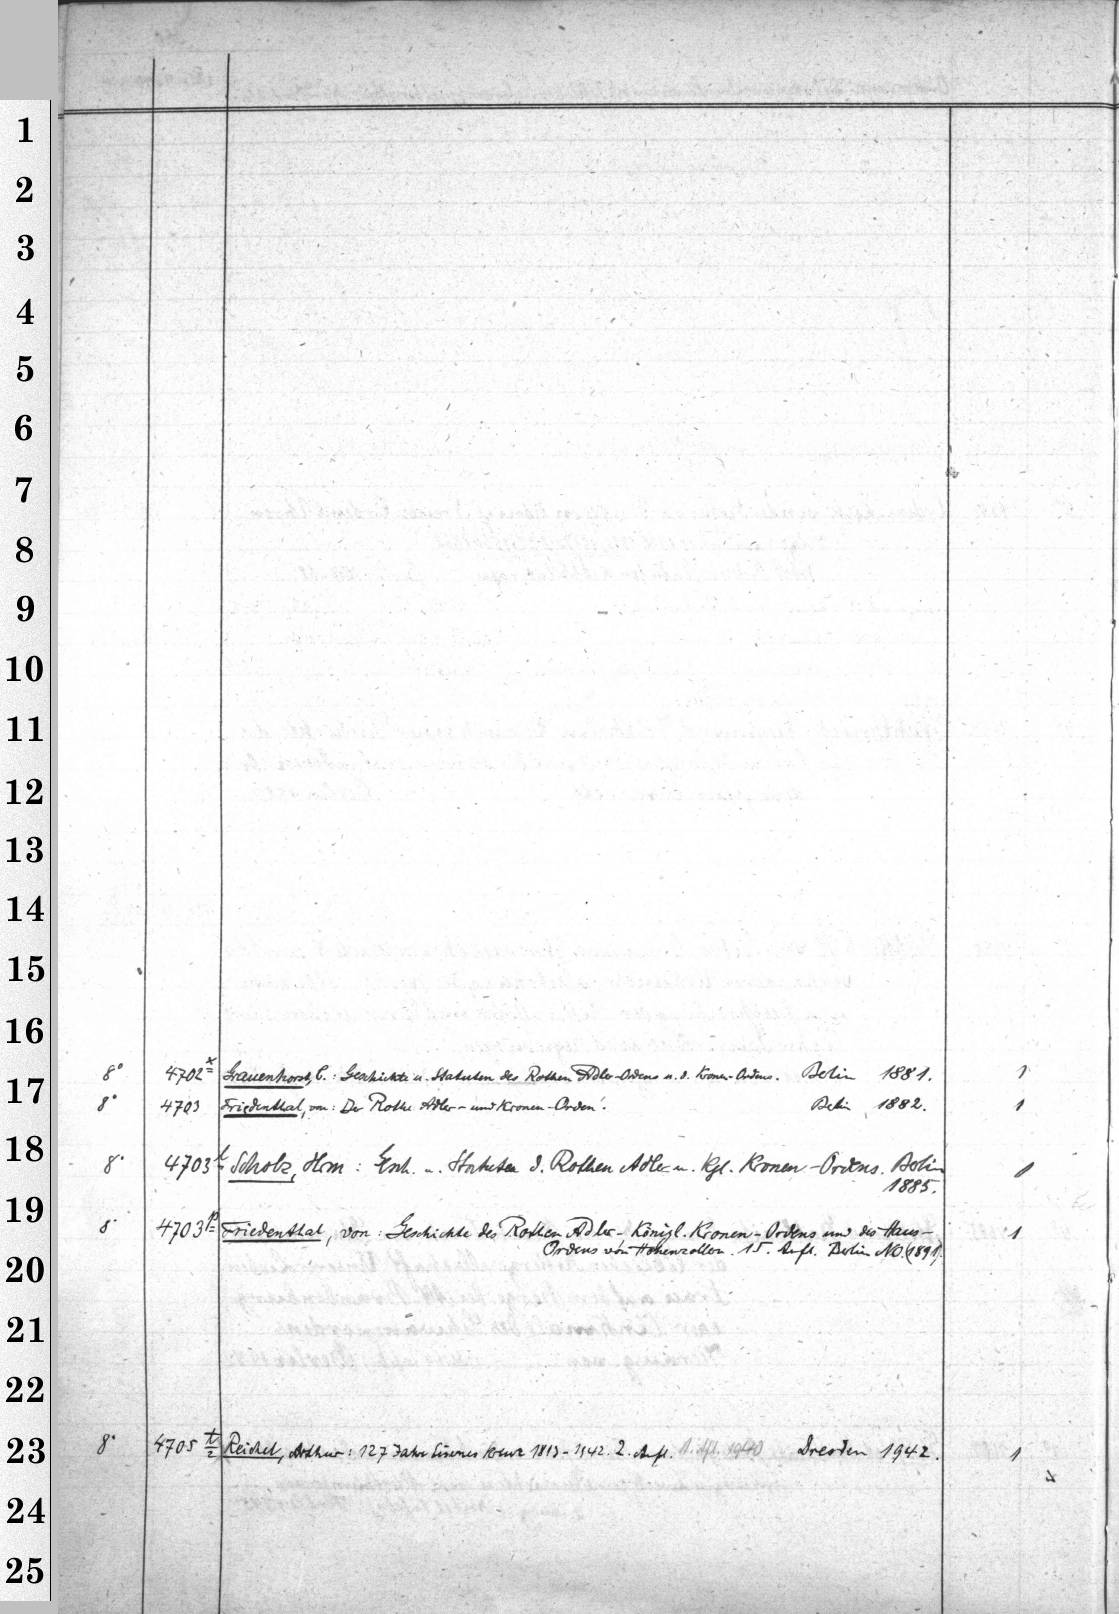 1
2
3
4
5
6
7
8
9
10
11
12
13
14
15
16
17
18
19
20
21
22
23
24
25
8° 4702 x Grauenhorst, C.: Geschichte u. Statuten des Rothen Adler-Ordens u. d. Kronen-Ordens. Berlin 1881. 1
8° 4703 Friedenthal, von: Der Rothe Adler- und Kronen-Orden. Berlin 1882. 1
8° 4703 t Scholz, Hrm: Gesch. u. Statuten d. Rothen Adler u. Kgl. Kronen-Ordens. Berlin
1885. 1
8° 4703 p Friedenthal, von: Geschichte des Rothen Adler- Königl. Kronen-Ordens und des Haus-
Ordens von Hohenzollern. 15. Aufl. Berlin NO. (1891). 1
8° 4705 t/2 Reichel, Arthur: 127 Jahre Eisernes Kreuz 1813-1942. 2. Aufl. 1. Afl. 1940 Dresden 1942. 1